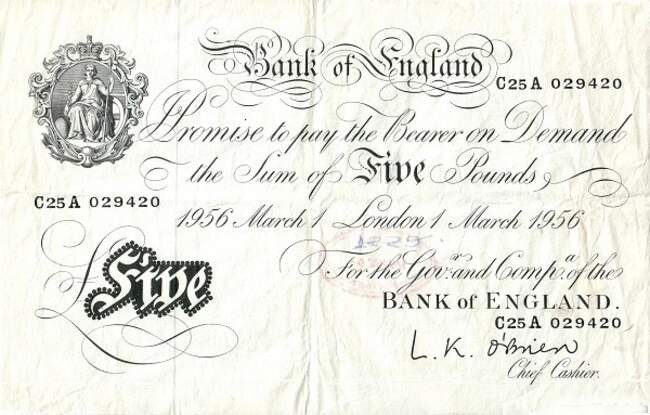 Bank of England
C25A 029420
I Promise to pay the Bearer on Demand
the Sum of Five Pounds
C25A 029420
1956 March 1 London 1 March 1956
1229
£Five
For the Govr. and Compa. of the
BANK of ENGLAND.
C25A 029420
L. K. O'Brien
Chief Cashier.